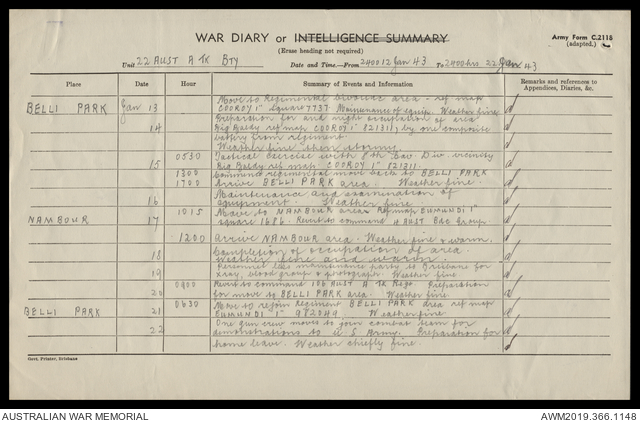 WAR DIARY or INTELLIGENCE SUMMARY
Army Form C.2118
(adapted.)
(Erase heading not required)
Unit 22 AUST A TK BTY
Date and Time.—From 240012 Jan 43 To 2400hrs 22 Jan 43
Place Date Hour Summary of Events and Information Remarks and references to Appendices, Diaries, &c.
BELLI PARK Jan 13 Move to Regimental bivouac area - ref map
COOROY 1" Square 7737 Maintenance of equip. Weather fine
14 Preparation for and night occupation of area
Big Baldy ref map COOROY 1" 821311) by one composite
battery from regiment.
Weather fine then stormy.
15 0530 Tactical exercise with 8th Cav. Div. vicinity
Big Baldy ref map COOROY 1" 821311.
1300 Commenced regimental move back to BELLI PARK
1700 Arrive BELLI PARK area. Weather fine.
16 Maintenance and examination of
equipment. Weather fine
NAMBOUR 17 1015 Move to NAMBOUR area Ref map EUMUNDI 1"
square 1686. Revert to command AUST Bde Group
1200 Arrive NAMBOUR area. Weather fine & warm.
18 Completion of occupation of area.
Weather fine and warm.
19 Personnel less maintenance party to Brisbane for
xray, blood group & photograph. Weather fine
20 0800 Revert to command 106 AUST A TK Regt. Preparation
for move to BELLI PARK area. Weather fine.
BELLI PARK 21 0630 Move to rejoin Regiment BELLI PARK area ref map
EUMUNDI 1" 982044 Weather fine
22 One gun crew moves to join combat team for
demonstrations to U.S. Army. Preparation for
home leave. Weather chiefly fine.
Govt. Printer, Brisbane
AUSTRALIAN WAR MEMORIAL
AWM2019.366.1148